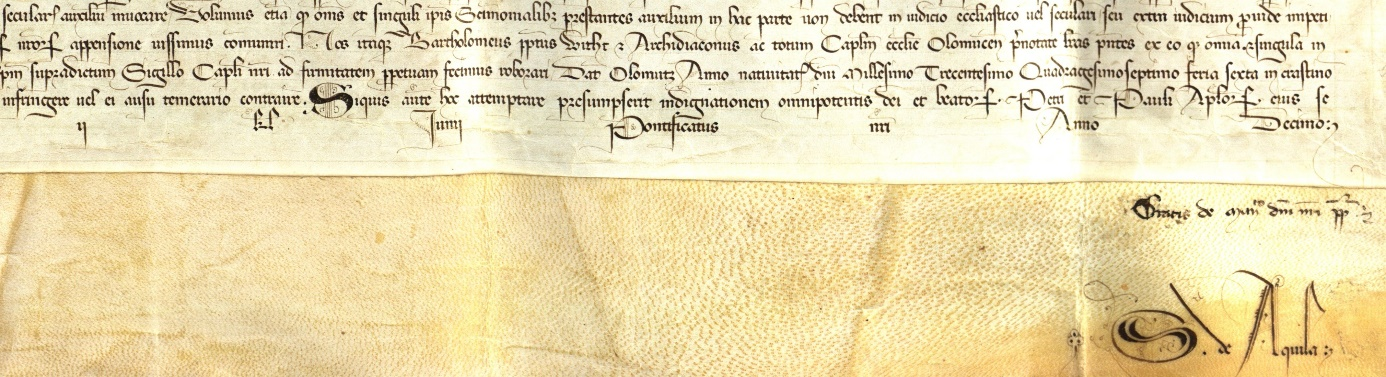 secular auxiliu inuocare Volumus etia q oms et singuli ipis Sctimonialibz prestantes auxilium in hac parte non debent in iudicio ecclesiastico uel seculari seu extra iudicium proinde impeti
appensione iussimus communiri. Nos itaqz Bartholomeus ppitus Witht z Archidiaconus ac totum Caplm ecclie Olomucen prnotate lras pntes ex eo q omia z singula in
supradictum Sigillo Capli nri ad firmitatem ppetuam fecimus roborari Dat Olomutz Anno natiuitat dni Millesimo Trecentesimo Quadragesimoseptimo feria sexta in crastino
infringere uel ei ausu temerario contraire. Siquis aute hoc attemptare presumpserit indignationem omnipotentis dei et beator Petri et Pauli Aplor eius se
ij kl Junij Pontificatus nri Anno Decimo
Gratis de man dni nri pp
S. de Aquila